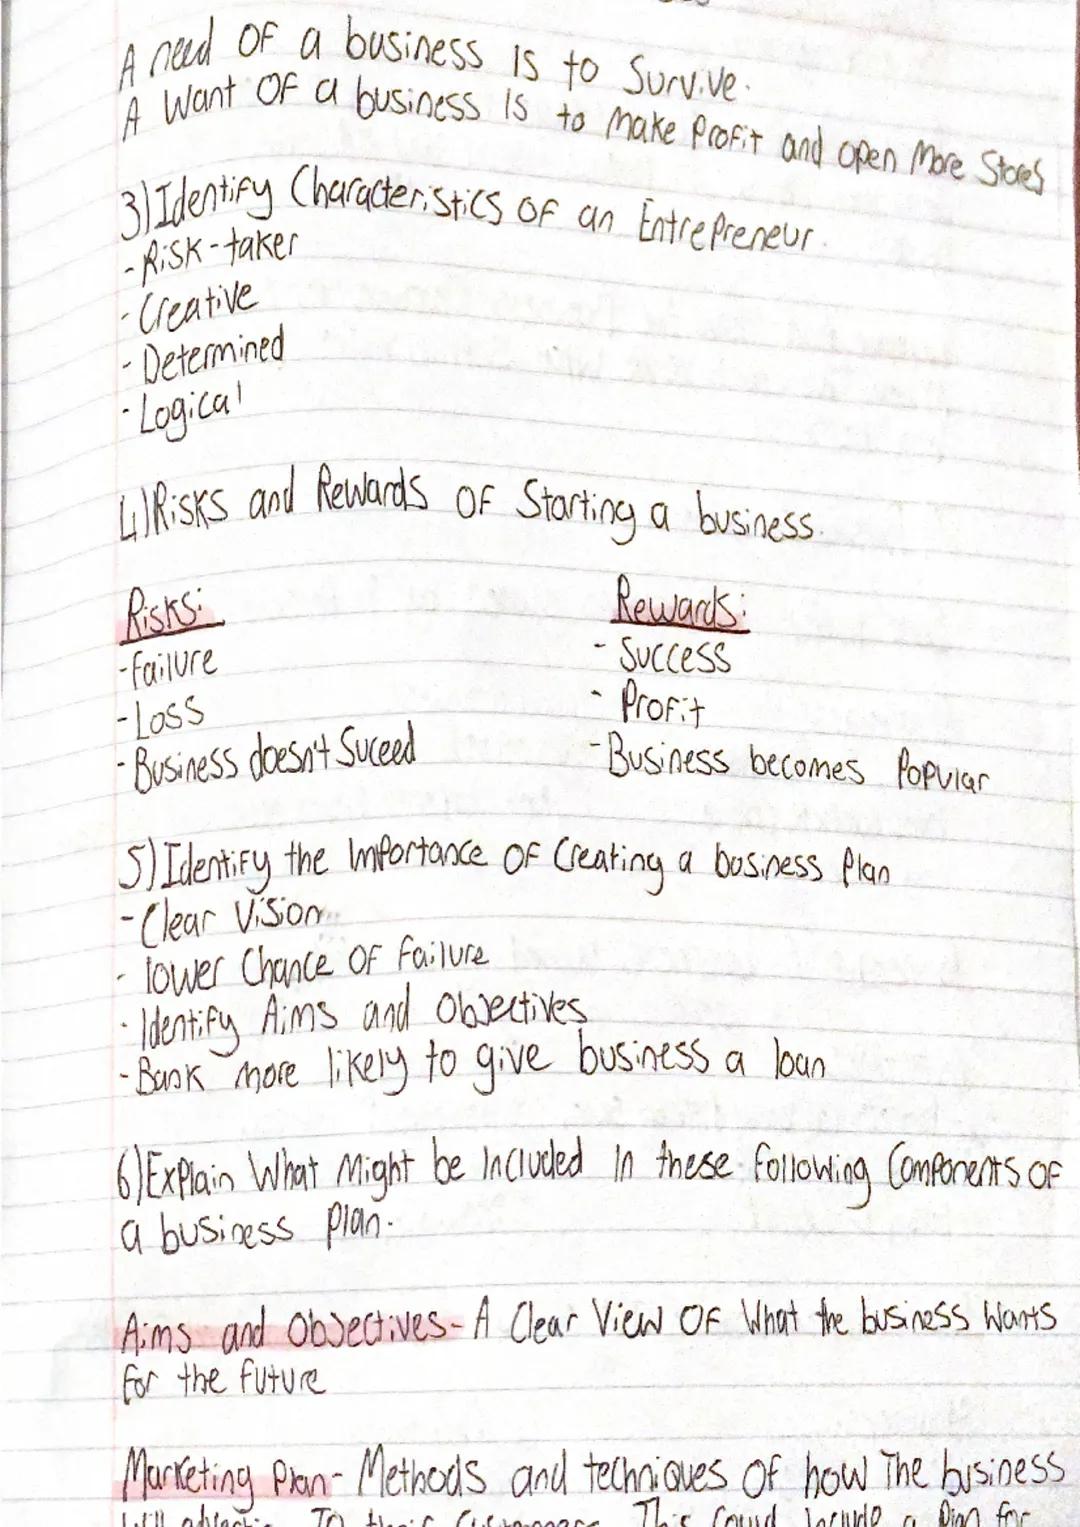 A need of a business is to Survive.
A Want of a business is to Make Profit and open More Stores
3) Identify Characteristics of an Entrepreneur.
- Risk-taker
- Creative
- Determined
- Logical
4) Risks and Rewards of Starting a business.
Risks:
- Failure
- Loss
- Business doesn't Suceed
Rewards:
- Success
- Profit
- Business becomes Popular
5) Identify the Importance of Creating a business Plan
- Clear Vision
- lower Chance of Failure
- Identify Aims and Objectives
- Bank more likely to give business a loan
6) Explain What Might be Included In these Following Components of
a business Plan.
Aims and Objectives - A Clear View of What the business Wants
for the future
Marketing Plan - Methods and techniques of how The business
To their Customers. This Could Include a Plan for